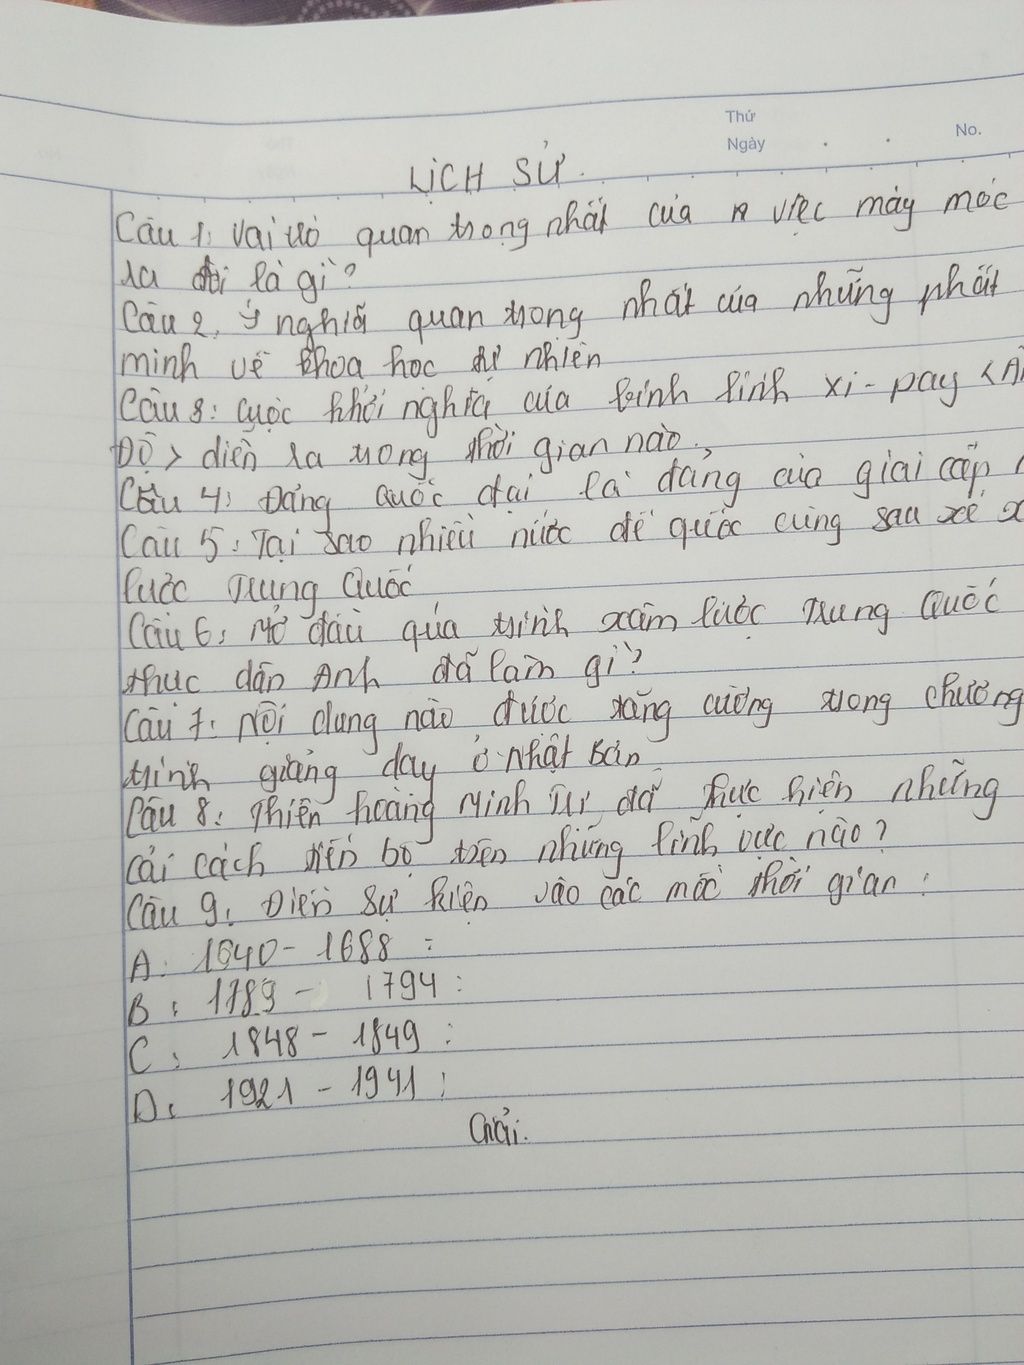 Thứ
Ngày
No.
LỊCH SỬ.
Câu 1: Vai trò quan trọng nhất của việc máy móc
ra đời là gì?
Câu 2, Ý nghĩa quan trọng nhất của những phát
minh về khoa học tự nhiên
Câu 3: Cuộc khởi nghĩa của binh lính xi-pay <Ấn
Độ> diễn ra trong thời gian nào.
Câu 4: Đảng Quốc đại là đảng của giai cấp
Câu 5: Tại sao nhiều nước đế quốc cùng sau xé
lược Trung Quốc
Câu 6: Mở đầu quá trình xâm lược Trung Quốc
thực dân Anh đã làm gì?
Câu 7: Nội dung nào được tăng cường trong chương
trình giảng dạy ở Nhật Bản
Câu 8: Thiên hoàng Minh Trị đã thực hiện những
cải cách tiến bộ trên những lĩnh vực nào?
Câu 9: Điền sự kiện vào các mốc thời gian:
A: 1640 - 1688 :
B: 1789 - 1794 :
C: 1848 - 1849 :
D: 1921 - 1941 :
Giải.